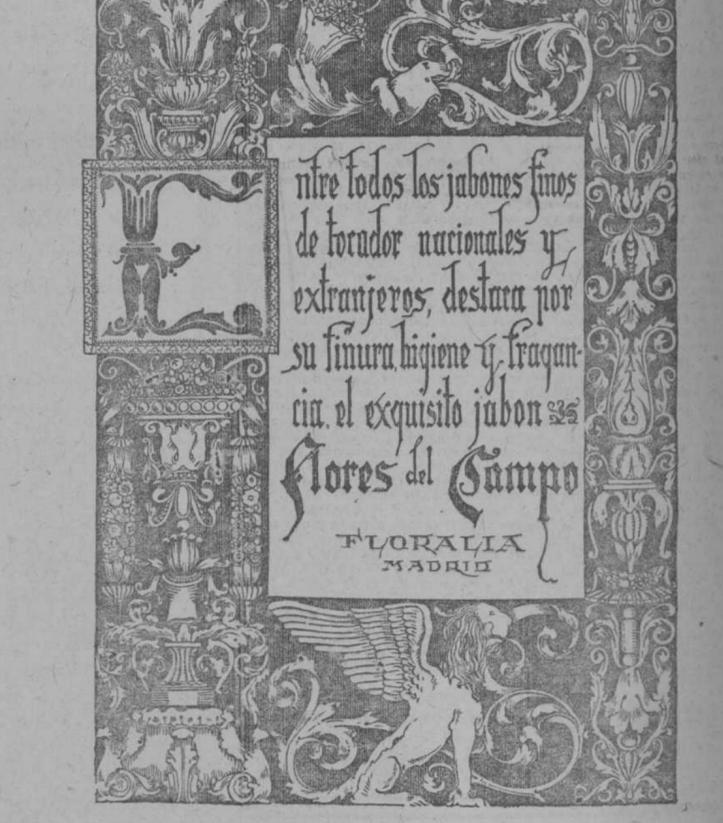 Entre todos los jabones finos
de tocador nacionales y
extranjeros, destaca por
su finura, higiene y fragan-
cia, el exquisito jabon
Flores del Campo
FLORALIA
MADRID